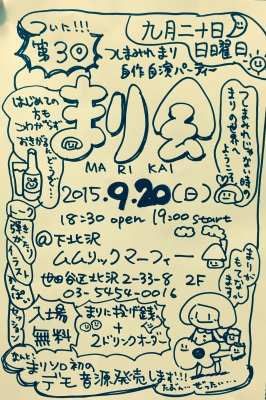 ついに!!!
第3回
九月二十日
日曜日
つしまみれ まり
自作自演パーティー
はじめての
方も
こわがらず
おきがるに
どうぞ…
まり会
MA RI KAI
つしまみれじゃない時の
まりの世界へ
ようこそ
2015.9.20(日)
18:30 open 19:00 start
@下北沢
ムムリックマーフィー
世田谷区北沢2-33-8 2F
03-5454-0016
まりが
もてなし
ます!
トーク
弾きがたり
イラスト
かんぱい
セッション
入場
無料
まりに投げ銭
+
2ドリンクオーダー
なんと、
まりソロ初の
デモ音源発売します!!!
たぶん…ぜったい…